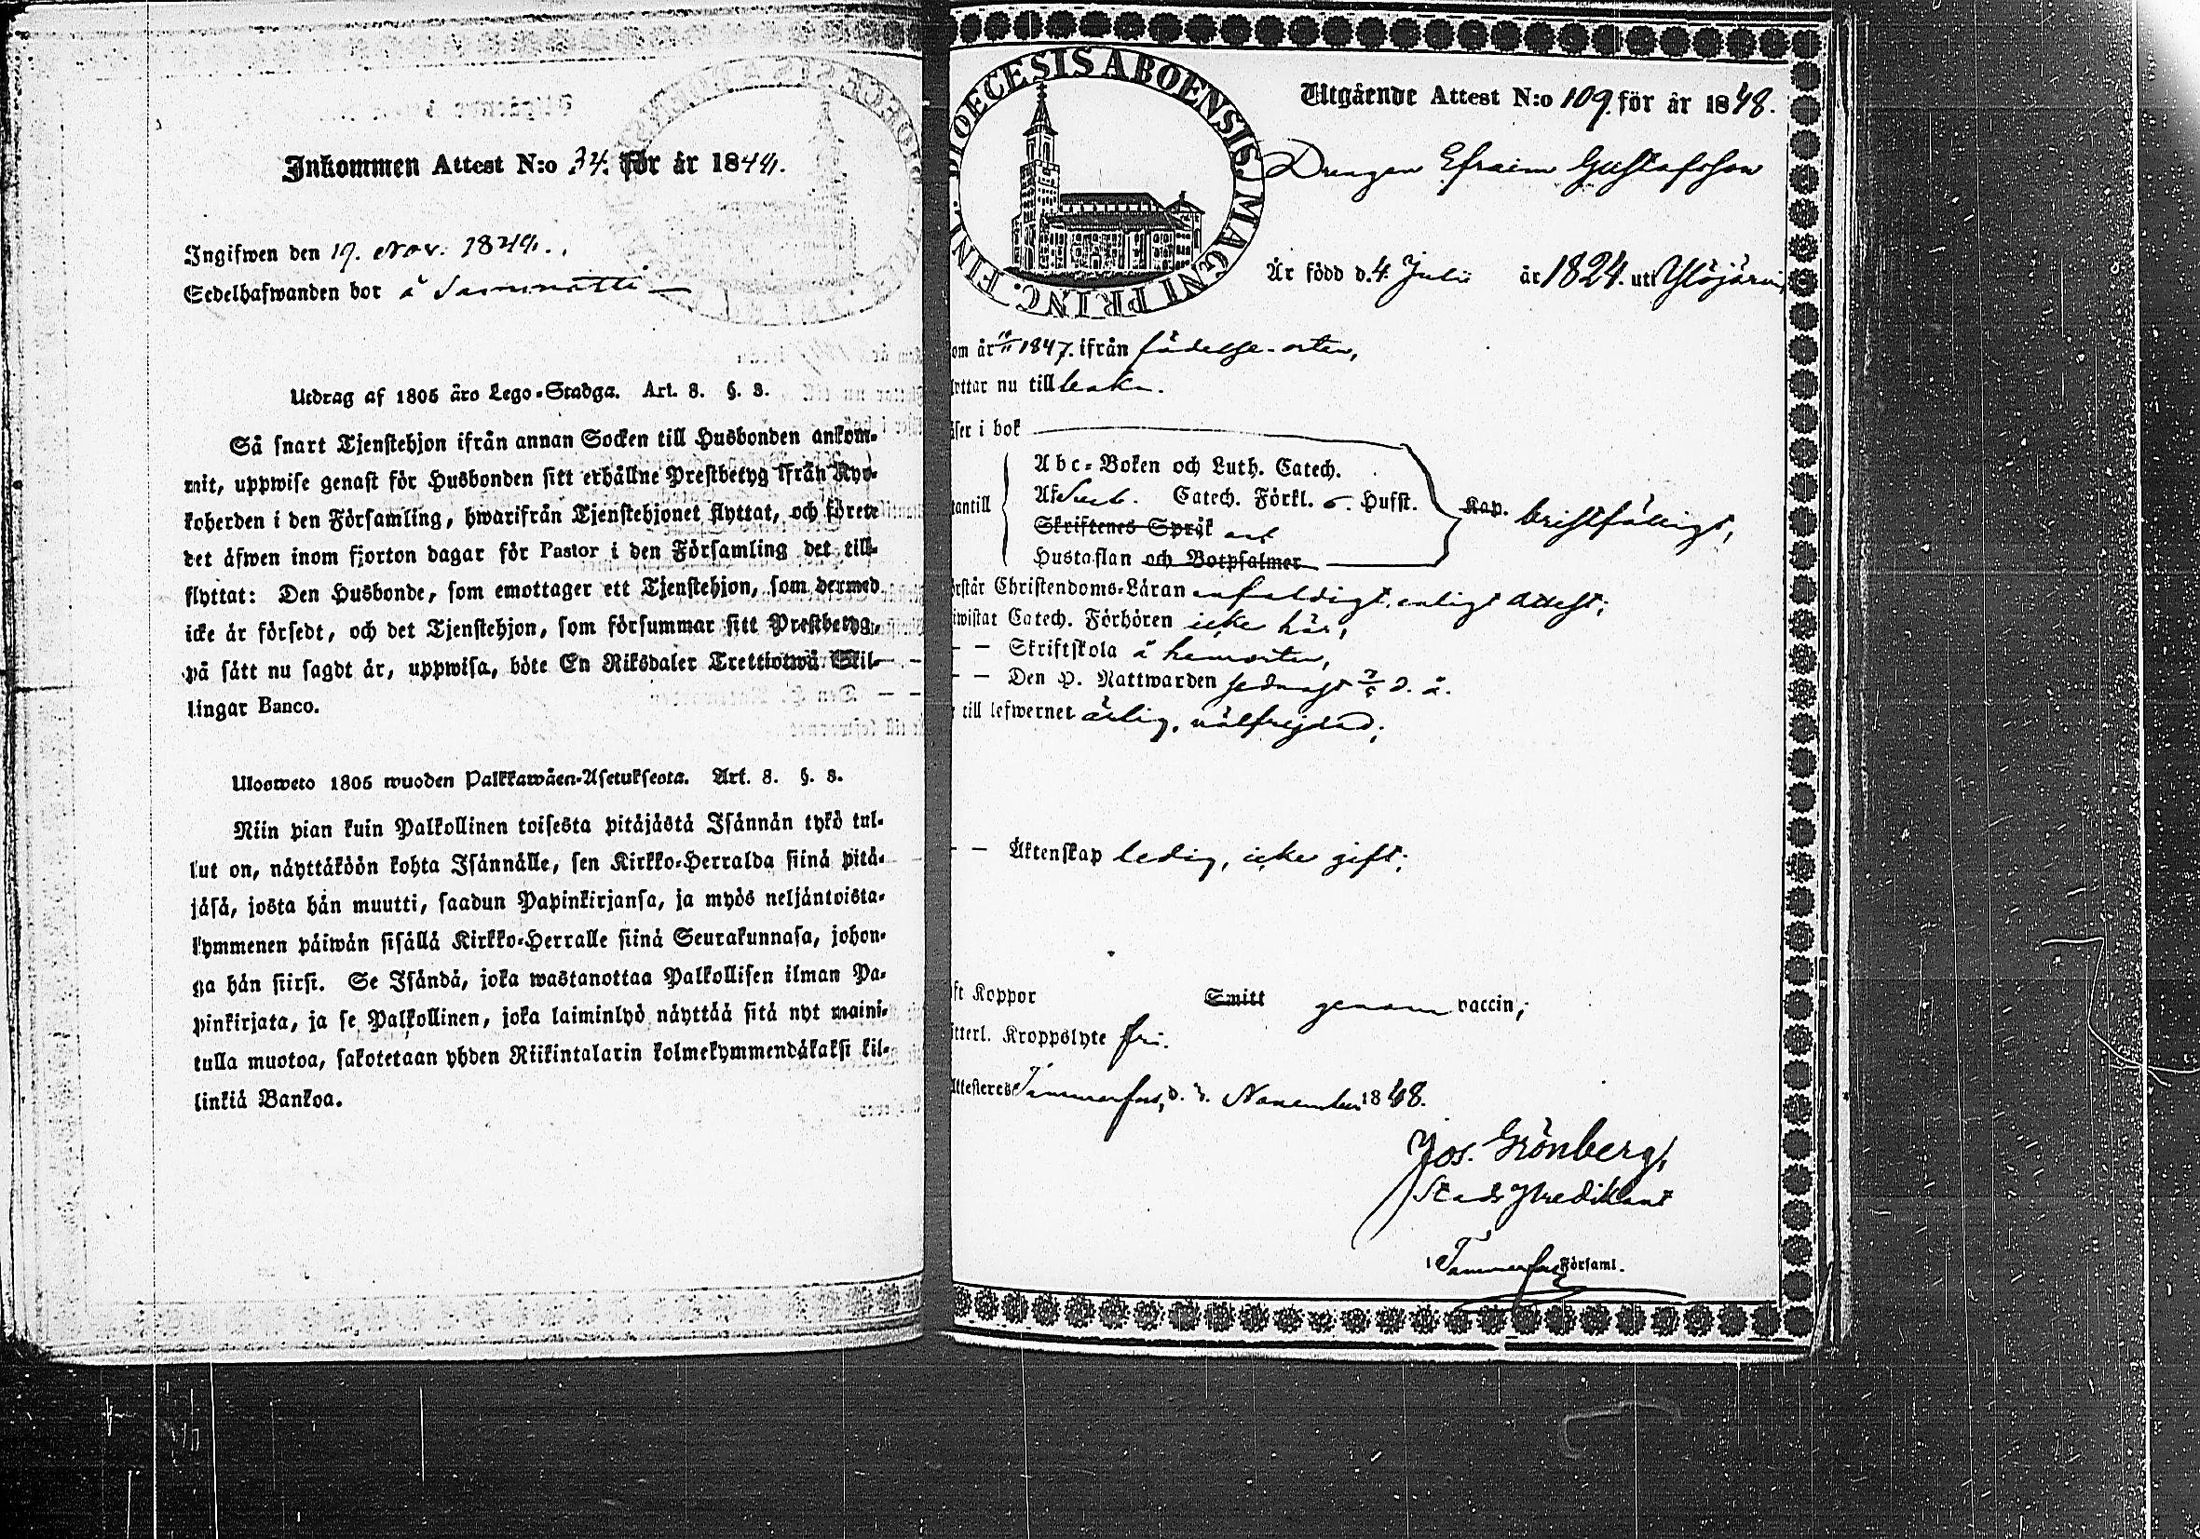 Inkommen Attest N:o 34. för år 1844.
Ingifwen den 19. Nov. 1844.
Sedelhafwanden bor å Sammatti
Utdrag af 1805 års Lego-Stadga. Art. 8. §. 8.
Så snart Tjenstehjon ifrån annan Socken till Husbonden ankom-
mit, uppwise genast för Husbonden sitt erhållne Prestbetyg ifrån Kyr-
koherden i den Församling, hwarifrån Tjenstehjonet flyttat, och förete
det äfwen inom fjorton dagar för Pastor i den Församling det till-
flyttat: Den Husbonde, som emottager ett Tjenstehjon, som dermed
icke är försedt, och det Tjenstehjon, som försummar sitt Prestbetyg,
på sätt nu sagdt är, uppwisa, böte En Riksdaler Trettiotwå Skil-
lingar Banco.
Ulosweto 1805 wuoden Palkkawäen-Asetuksesta. Art. 8. §. 8.
Niin pian kuin Palkollinen toisesta pitäjästä Isännän tykö tul-
lut on, näyttäköön kohta Isännälle, sen Kirkko-Herralda siinä pitä-
jäsä, josta hän muutti, saadun Papinkirjansa, ja myös neljäntoista-
kymmenen päiwän sisällä Kirkko-Herralle siinä Seurakunnasa, johon-
ga hän siirsi. Se Isändä, joka wastanottaa Palkollisen ilman Pa-
pinkirjata, ja se Palkollinen, joka laiminlyö näyttää sitä nyt maini-
tulla muotoa, sakotetaan yhden Riikintalarin kolmekymmendäkaksi kil-
linkiä Bankoa.
DIOECESIS ABOENSIS. MAGNI PRINC. FINL.
Utgående Attest N:o 109. för år 1848.
Drengen Efraim Gustafsson
Är född d. 4 Julii år 1824. uti Ylöjärvi,
om år 1847. ifrån födelse-orten,
lyttar nu till
äser i bok
Abc-Boken och Luth. Catech.
Af Catech. Förkl. o. Hufst.
tantill Skriftenes Språk ant Kap. bristfälligt,
Hustaflan och Botpsalmer
rstår Christendoms-Läran enfaldigt, enligt Attest;
iwistat Catech. Förhören icke här,
— — Skriftskola å hemorten,
— — Den H. Nattwarden sednast 7/5 d. å.
till lefwernet ärlig, välfrejdad;
— — Äktenskap ledig, icke gift;
ft Koppor Smitt genom vaccin;
tterl. Kroppslyte fri.
Attesteras Tammerfors, d. 3. November 1848.
Jos. Grönberg,
Stads Predikant
i Tammerfors Församl.